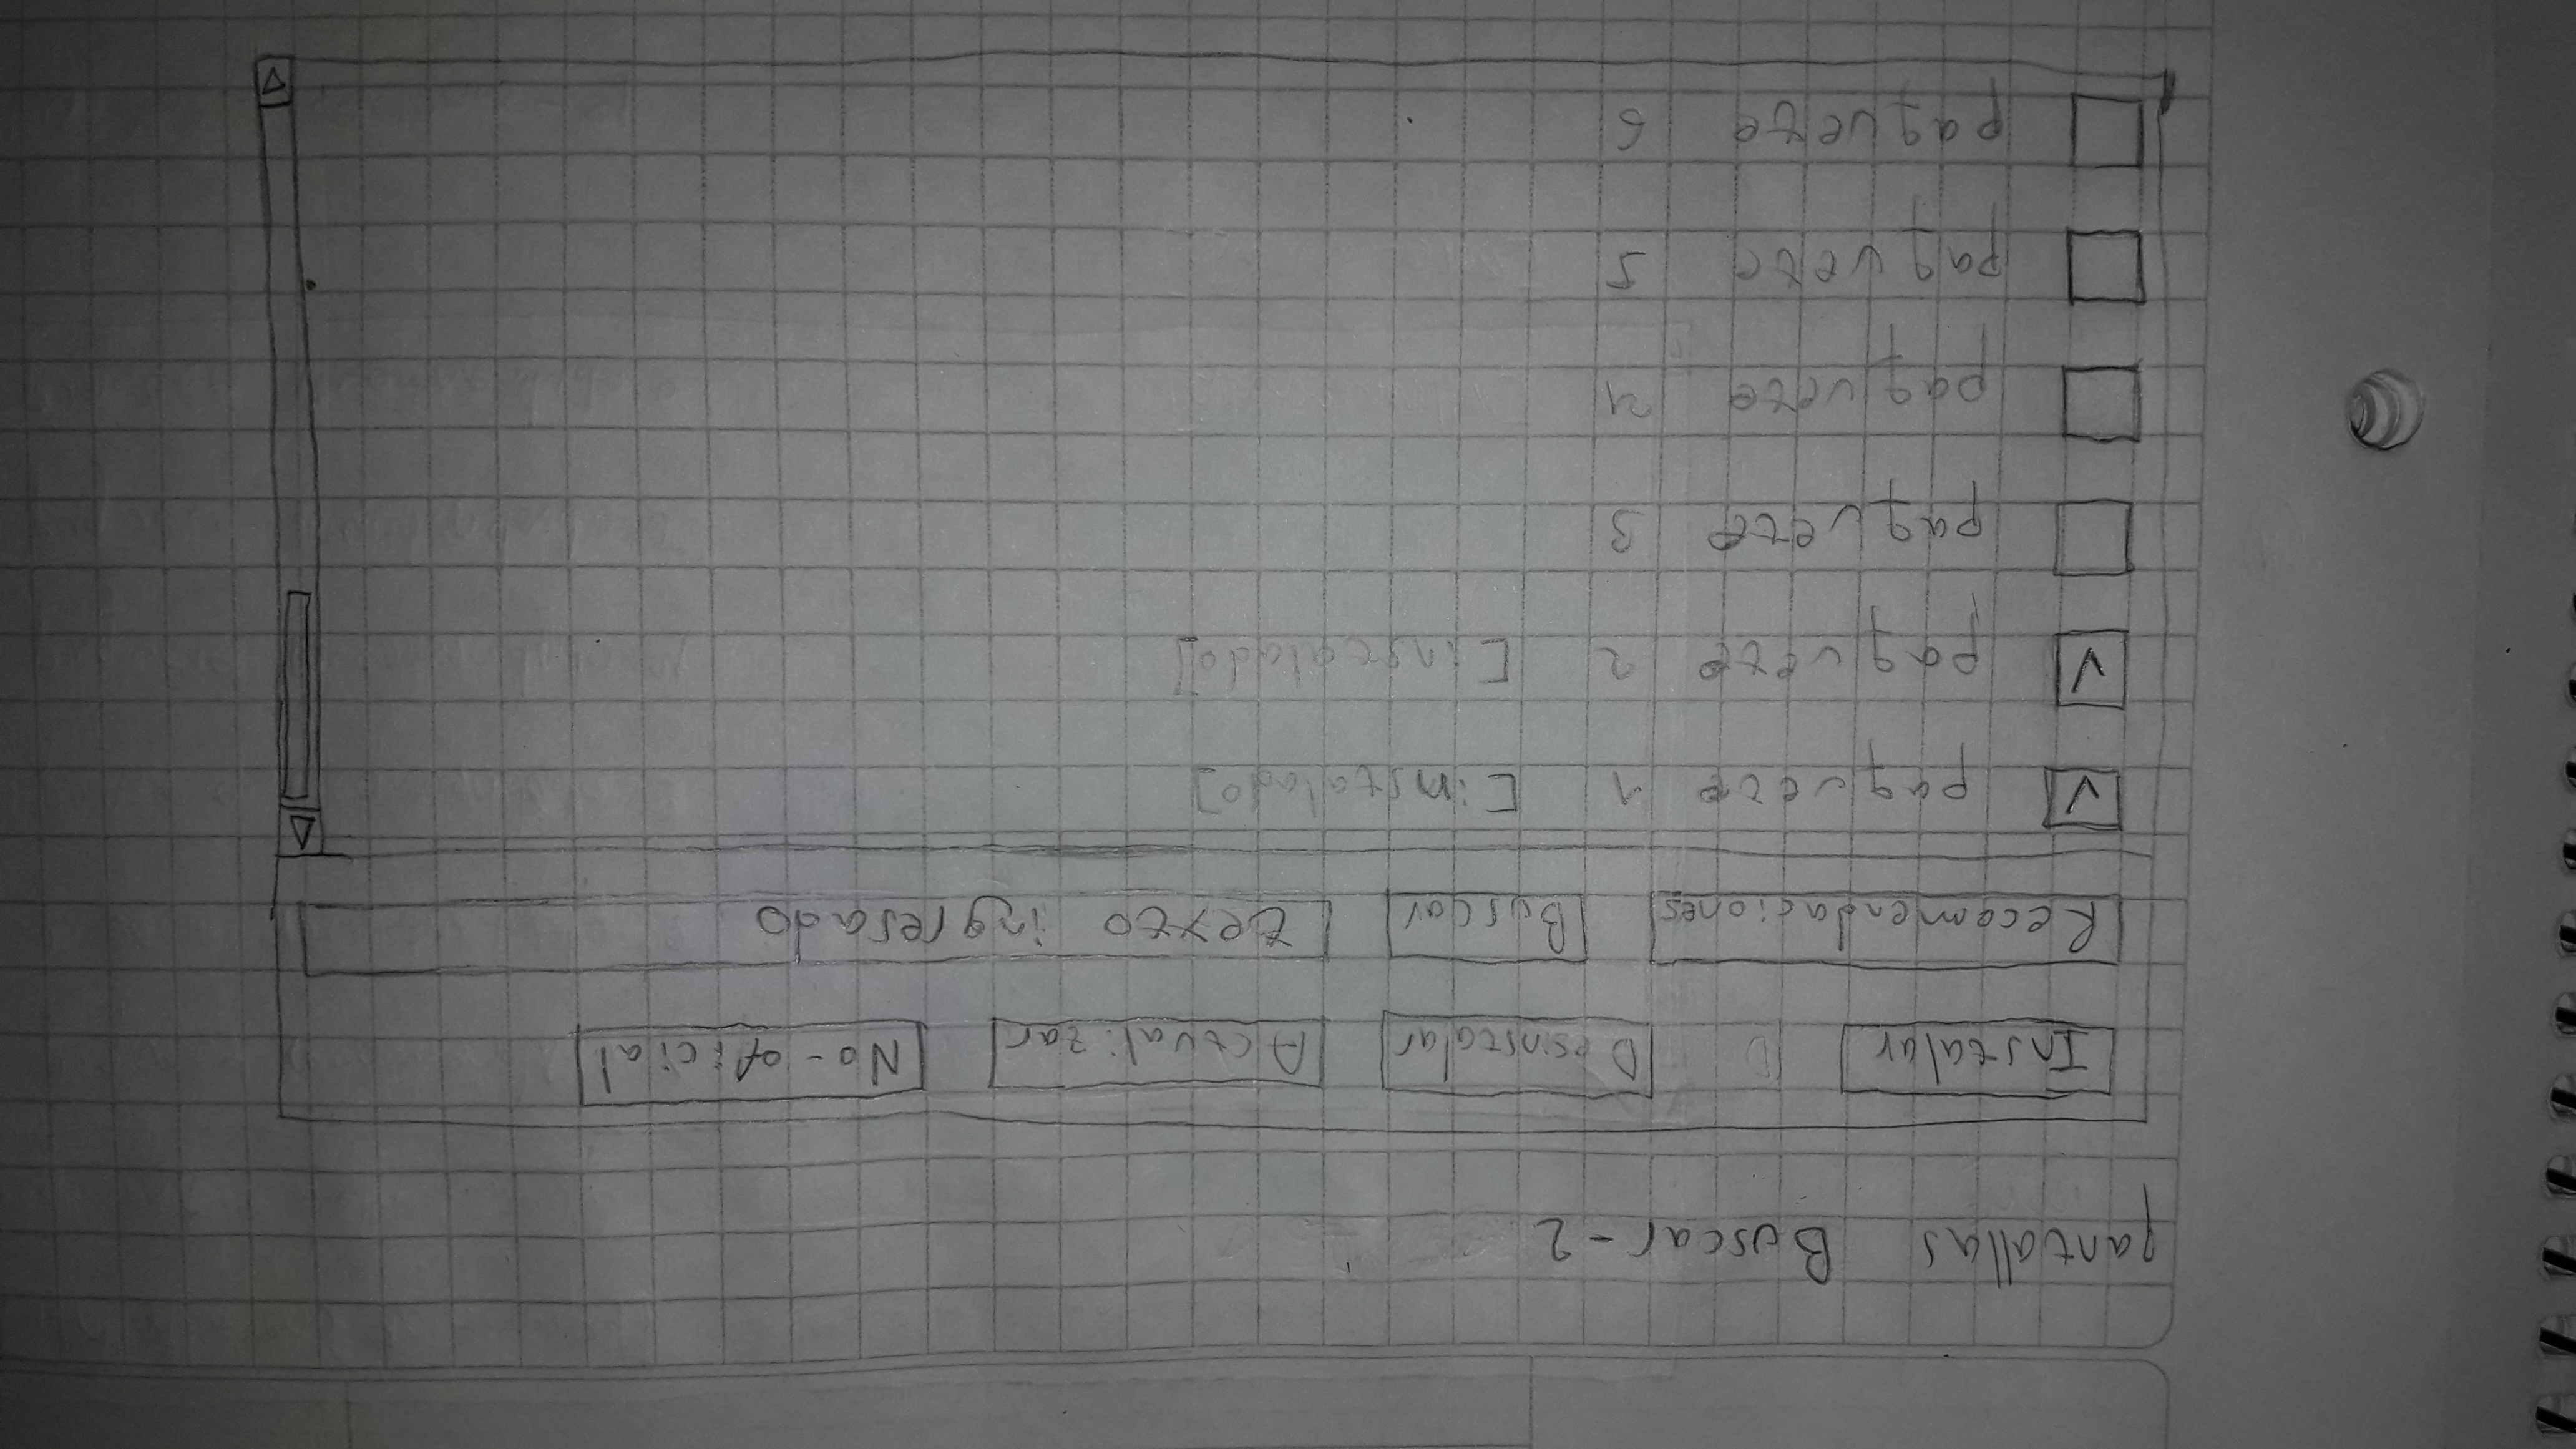 pantallas Buscar-2
Instalar D Desinstalar Actualizar No-oficial
Recomendaciones Buscar texto ingresado
paquete 1 [instalado]
paquete 2 [instalado]
paquete 3
paquete 4
paquete 5
paquete 6